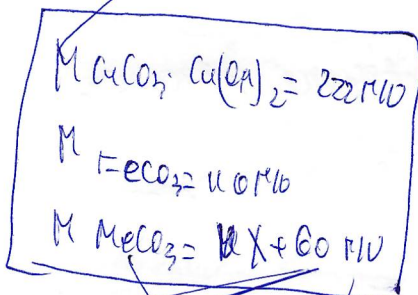 M CuCO3 · Cu(OH)2 = 222 г/моль
M FeCO3 = 116 г/моль
M MeCO3 = X + 60 г/моль